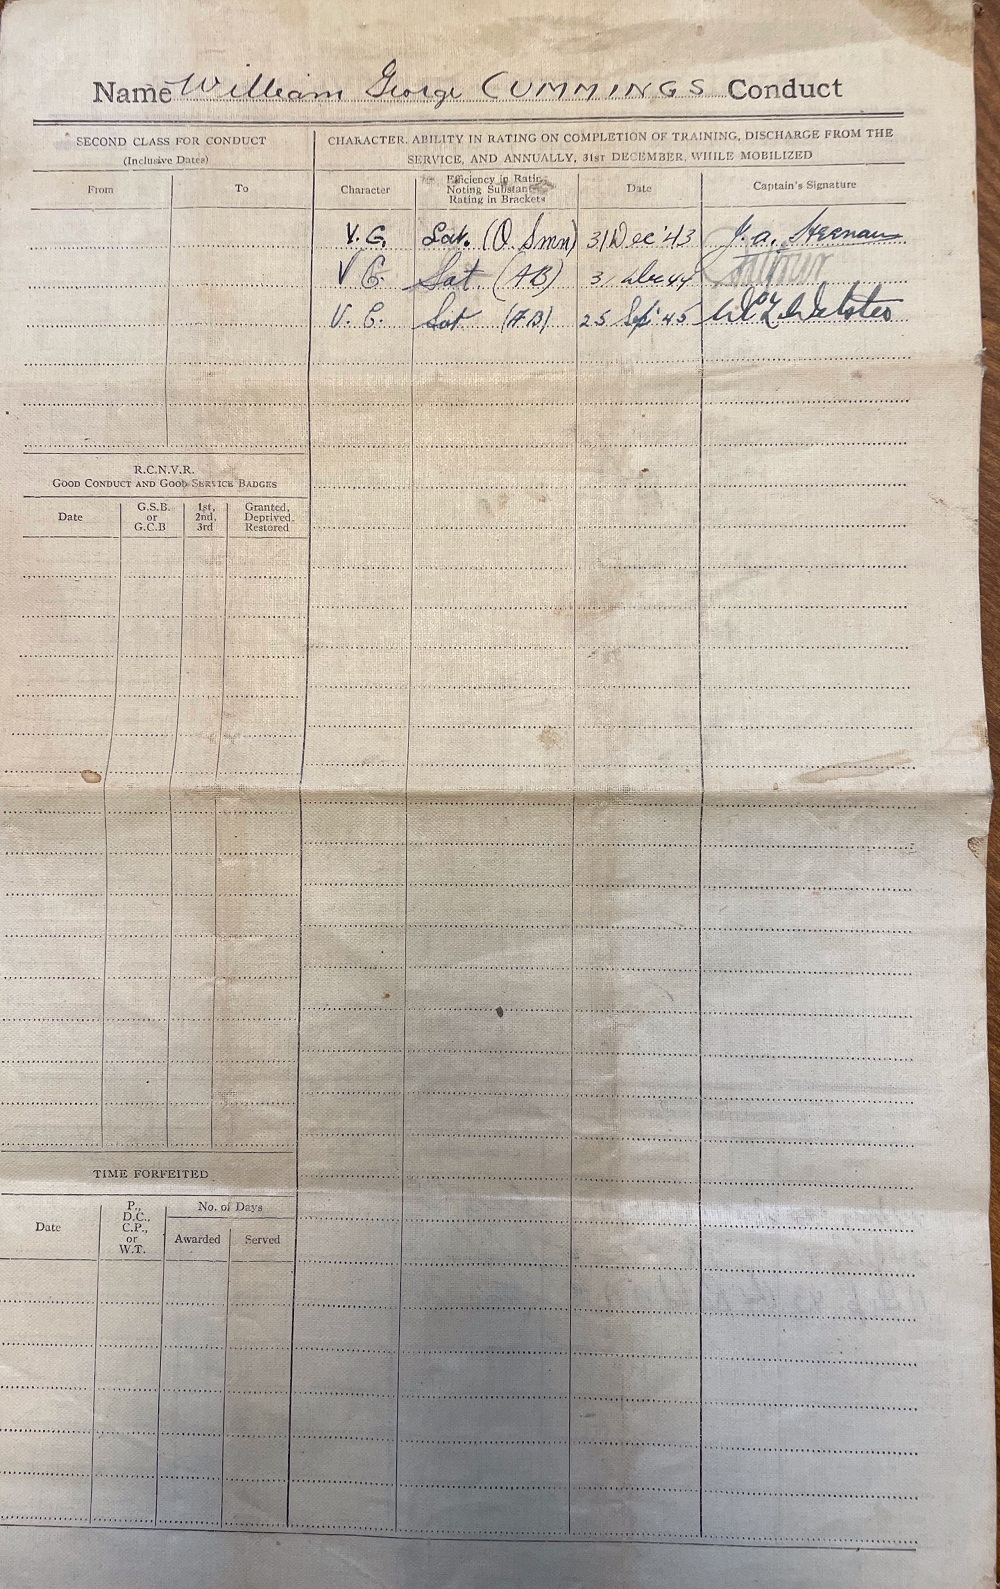 Name William George CUMMINGS Conduct
SECOND CLASS FOR CONDUCT
(Inclusive Dates)
From To
CHARACTER, ABILITY IN RATING ON COMPLETION OF TRAINING, DISCHARGE FROM THE
SERVICE, AND ANNUALLY, 31ST DECEMBER, WHILE MOBILIZED
Character
Efficiency in Rating
Noting Substantive
Rating in Brackets
Date
Captain's Signature
V.G. Sat. (O. Smn) 31 Dec '43 J. A. Heenan
V G. Sat. (AB) 31 Dec 44
V. G. Sat (AB) 25 Sep '45 Webster
R.C.N.V.R.
GOOD CONDUCT AND GOOD SERVICE BADGES
Date
G.S.B.
or
G.C.B
1st,
2nd,
3rd
Granted,
Deprived,
Restored
TIME FORFEITED
Date
P.,
D.C.,
C.P.,
or
W.T.
No. of Days
Awarded Served